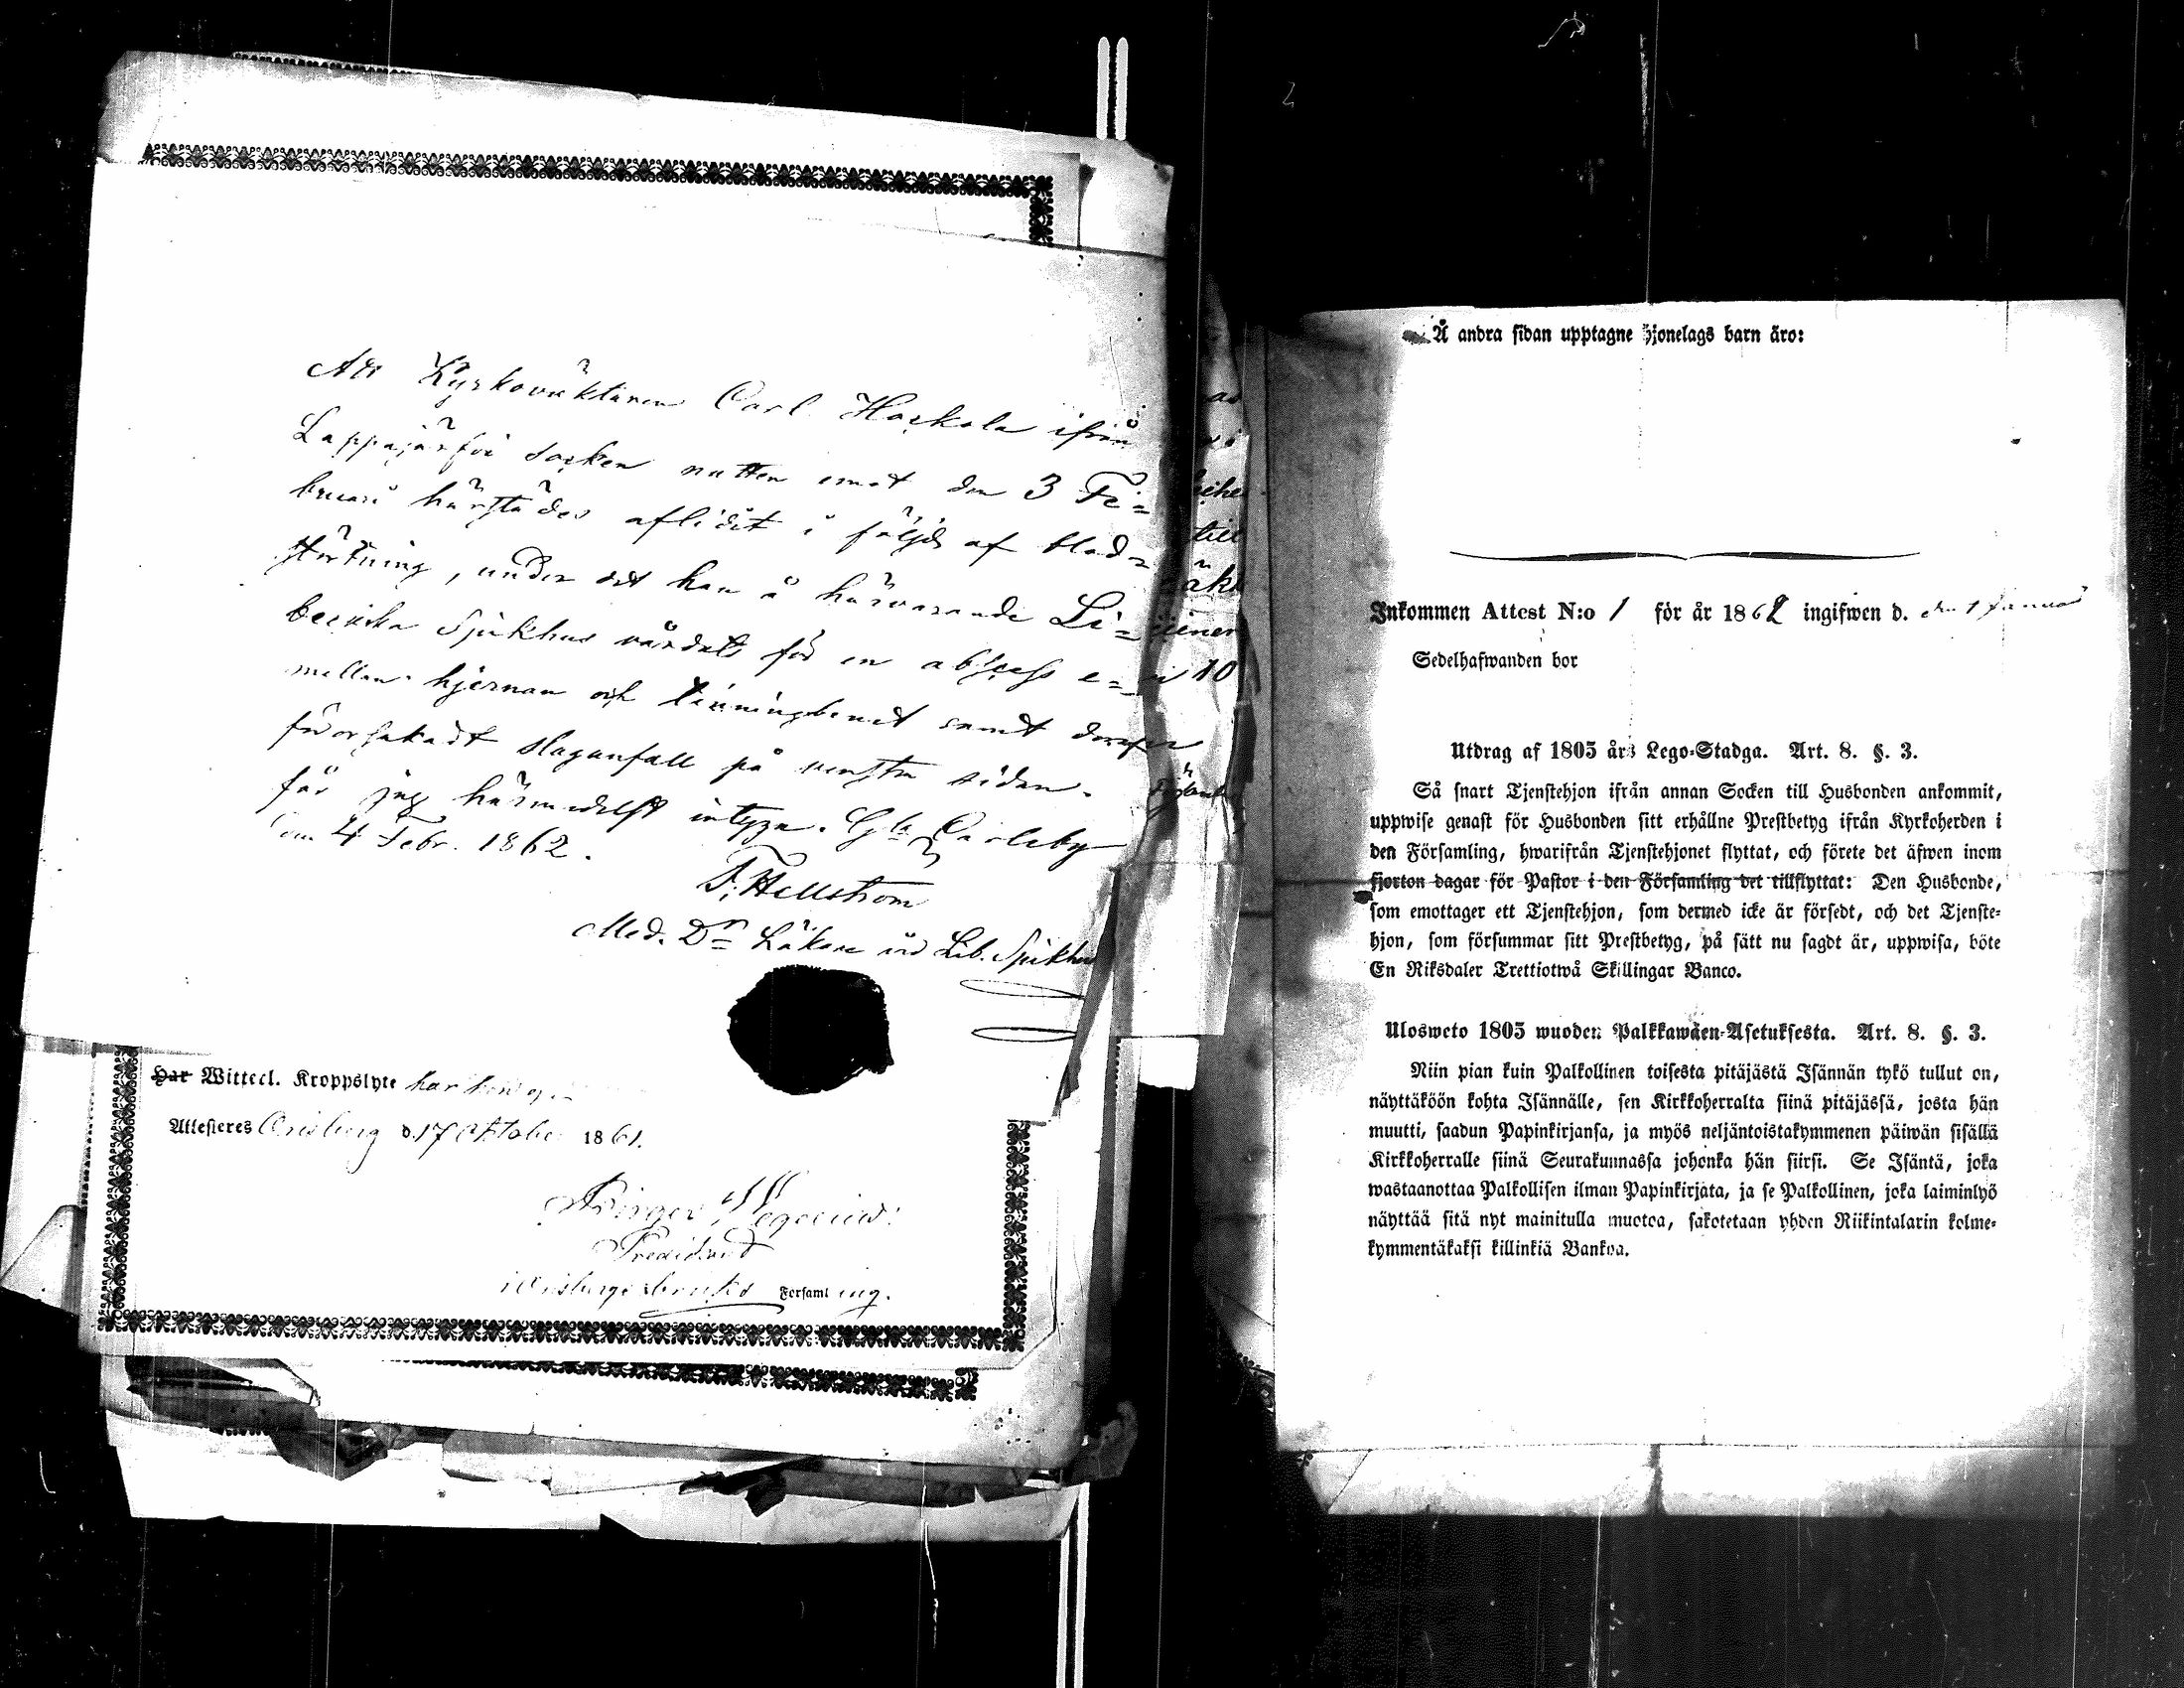 Att Kyrkoväktaren Carl Harkola ifrån
Lappajärfvi socken natten emot den 3 Fe=
bruari härstädes aflidit i följd af blod=
störtning, under det han å härvarande Li=
beciska Sjukhus vårdats för en abscess e=
mellan hjernan och tinningbenet samt deraf
förorsakadt slaganfall på venstra sidan,
får jag härmedelst intyga. Gla Carleby
den 4 Febr. 1862.
F. Hellström
Med. Dr Läkare vid Lib. Sjukhus
Har Wittecl. Kroppslyte har han
Attesteres Orisberg d. 17 Oktober 1861.
Predikant
i Orisbergs bruks Församling.
till
10
Å andra sidan upptagne hjonelags barn äro:
Inkommen Attest N:o 1 för år 1862 ingifwen d. den 1 Januari
Sedelhafwanden bor
Utdrag af 1805 års Lego-Stadga. Art. 8. §. 3.
Så snart Tjenstehjon ifrån annan Socken till Husbonden ankommit,
uppwise genast för Husbonden sitt erhållne Prestbetyg ifrån Kyrkoherden i
den Församling, hwarifrån Tjenstehjonet flyttat, och förete det äfwen inom
fjorton dagar för Pastor i den Församling det tillflyttat: Den Husbonde,
som emottager ett Tjenstehjon, som dermed icke är försedt, och det Tjenste-
hjon, som försummar sitt Prestbetyg, på sätt nu sagdt är, uppwisa, böte
En Riksdaler Trettiotwå Skillingar Banco.
Ulosweto 1805 wuoden Palkkawäen-Asetuksesta. Art. 8. §. 3.
Niin pian kuin Palkollinen toisesta pitäjästä Isännän tykö tullut on,
näyttäköön kohta Isännälle, sen Kirkkoherralta siinä pitäjässä, josta hän
muutti, saadun Papinkirjansa, ja myös neljäntoistakymmenen päiwän sisällä
Kirkkoherralle siinä Seurakunnassa johonka hän siirsi. Se Isäntä, joka
wastaanottaa Palkollisen ilman Papinkirjata, ja se Palkollinen, joka laiminlyö
näyttää sitä nyt mainitulla muotoa, sakotetaan yhden Riikintalarin kolme-
kymmentäkaksi killinkiä Bankoa.